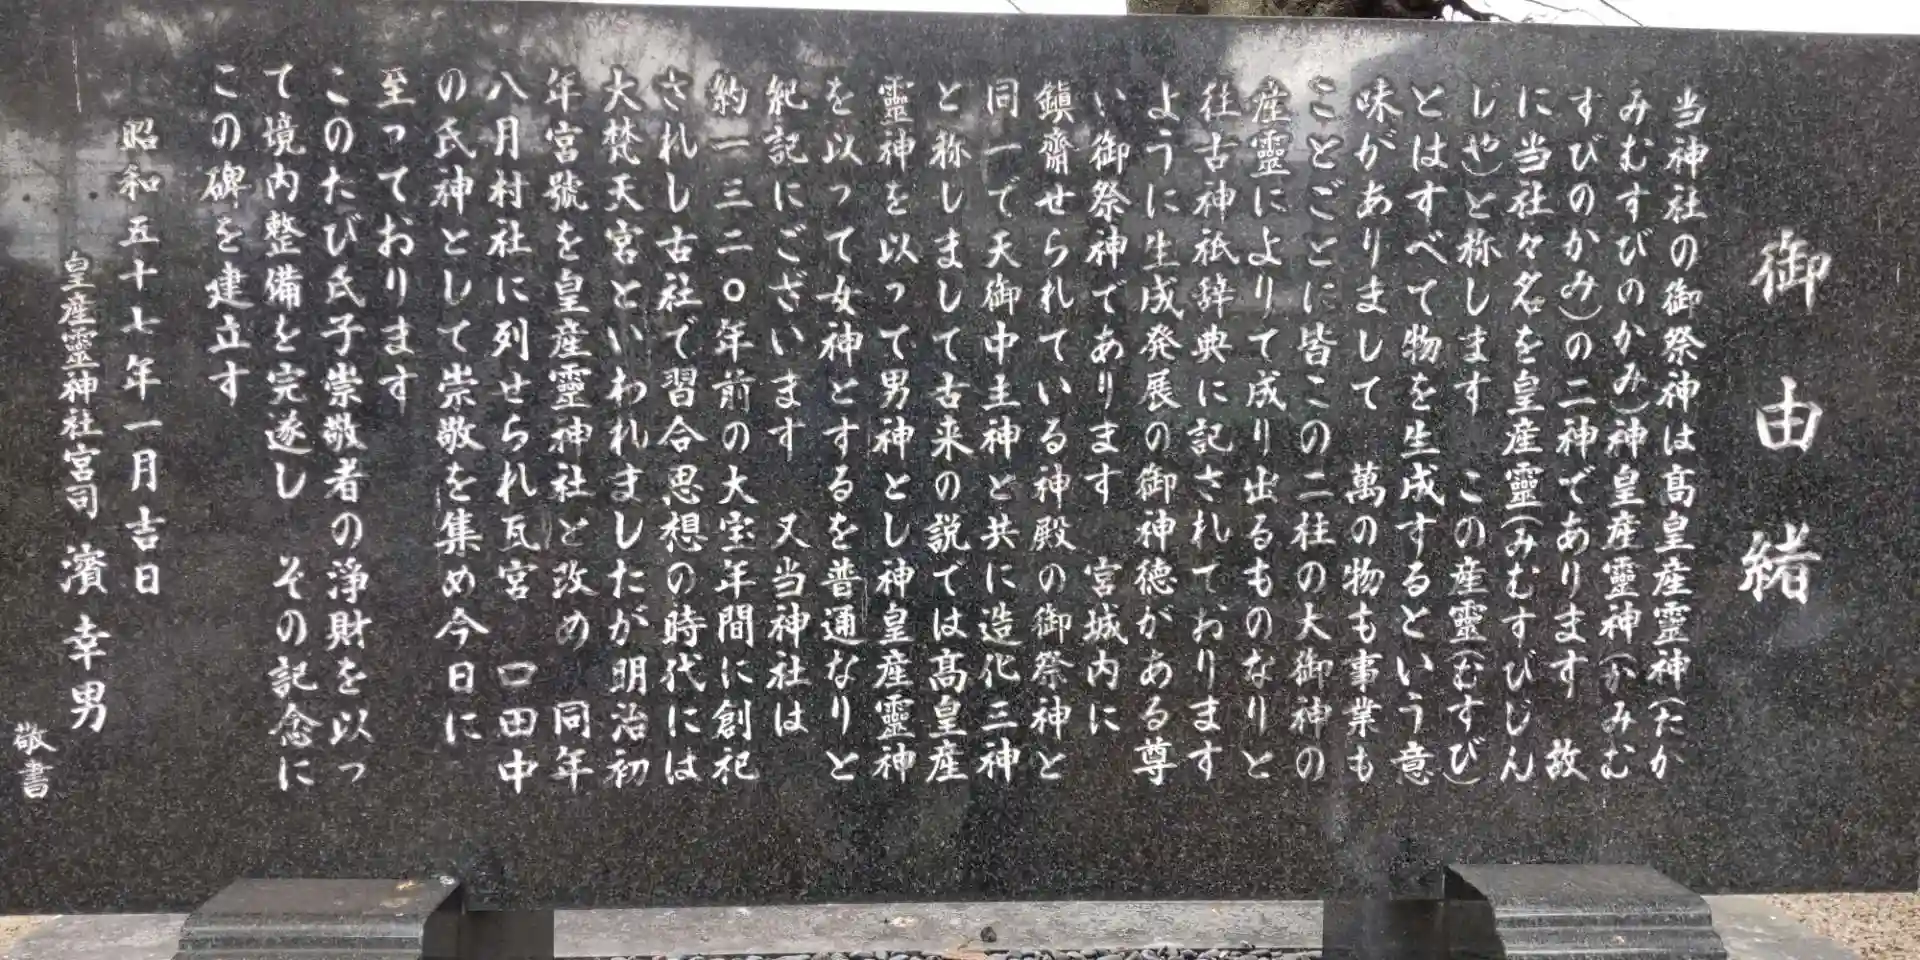 御由緒
当神社の御祭神は髙皇産霊神(たか
みむすびのかみ)神皇産靈神(かみむ
すびのかみ)の二神であります 故
に当社々名を皇産靈(みむすびじん
じや)と称します この産靈(むすび)
とはすべて物を生成するという意
味がありまして 萬の物も事業も
ことごとに皆この二柱の大御神の
産靈によりて成り出るものなりと
往古神祇辞典に記されております
ように生成発展の御神徳がある尊
い御祭神であります 宮城内に
鎮齋せられている神殿の御祭神と
同一で天御中主神と共に造化三神
と称しまして古来の説では髙皇産
靈神を以って男神とし神皇産靈神
を以って女神とするを普通なりと
紀記にございます 又当神社は
約一三二〇年前の大宝年間に創祀
されし古社で習合思想の時代には
大梵天宮といわれましたが明治初
年宮號を皇産靈神社と改め 同年
八月村社に列せられ瓦宮 口田中
の氏神として崇敬を集め今日に
至っております
このたび氏子崇敬者の浄財を以っ
て境内整備を完遂し その記念に
この碑を建立す
昭和五十七年一月吉日
皇産靈神社宮司 濱幸男
敬書